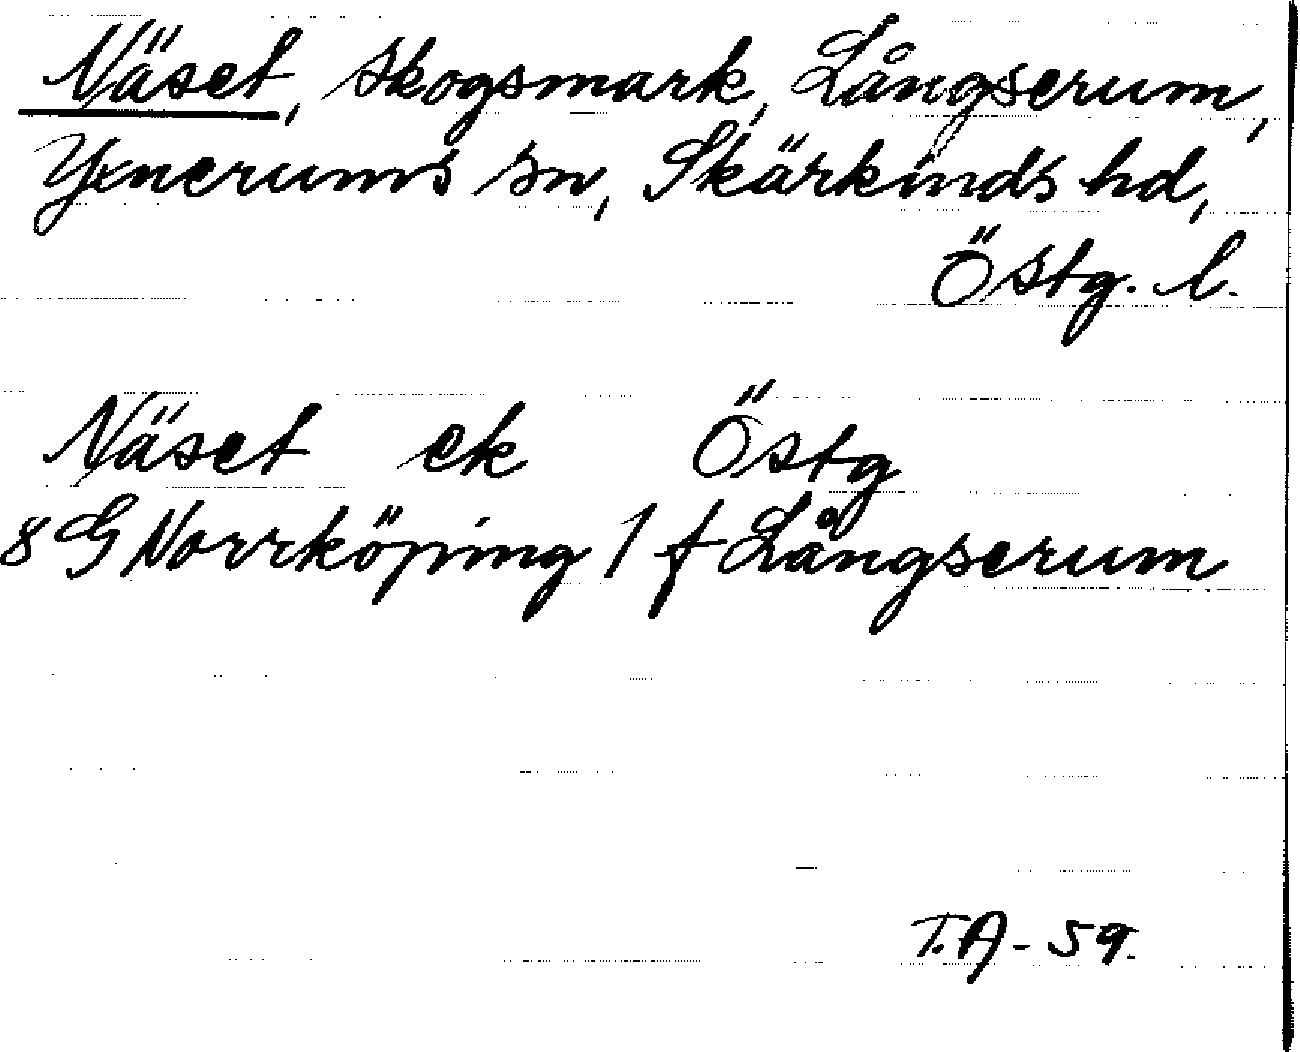 Näset, skogsmark, Långserum,
Yxnerums sn, Skärkinds hd,
Östg. l.
Näset ek Östg
8 G Norrköping 1 f Långserum
T.A - 59.